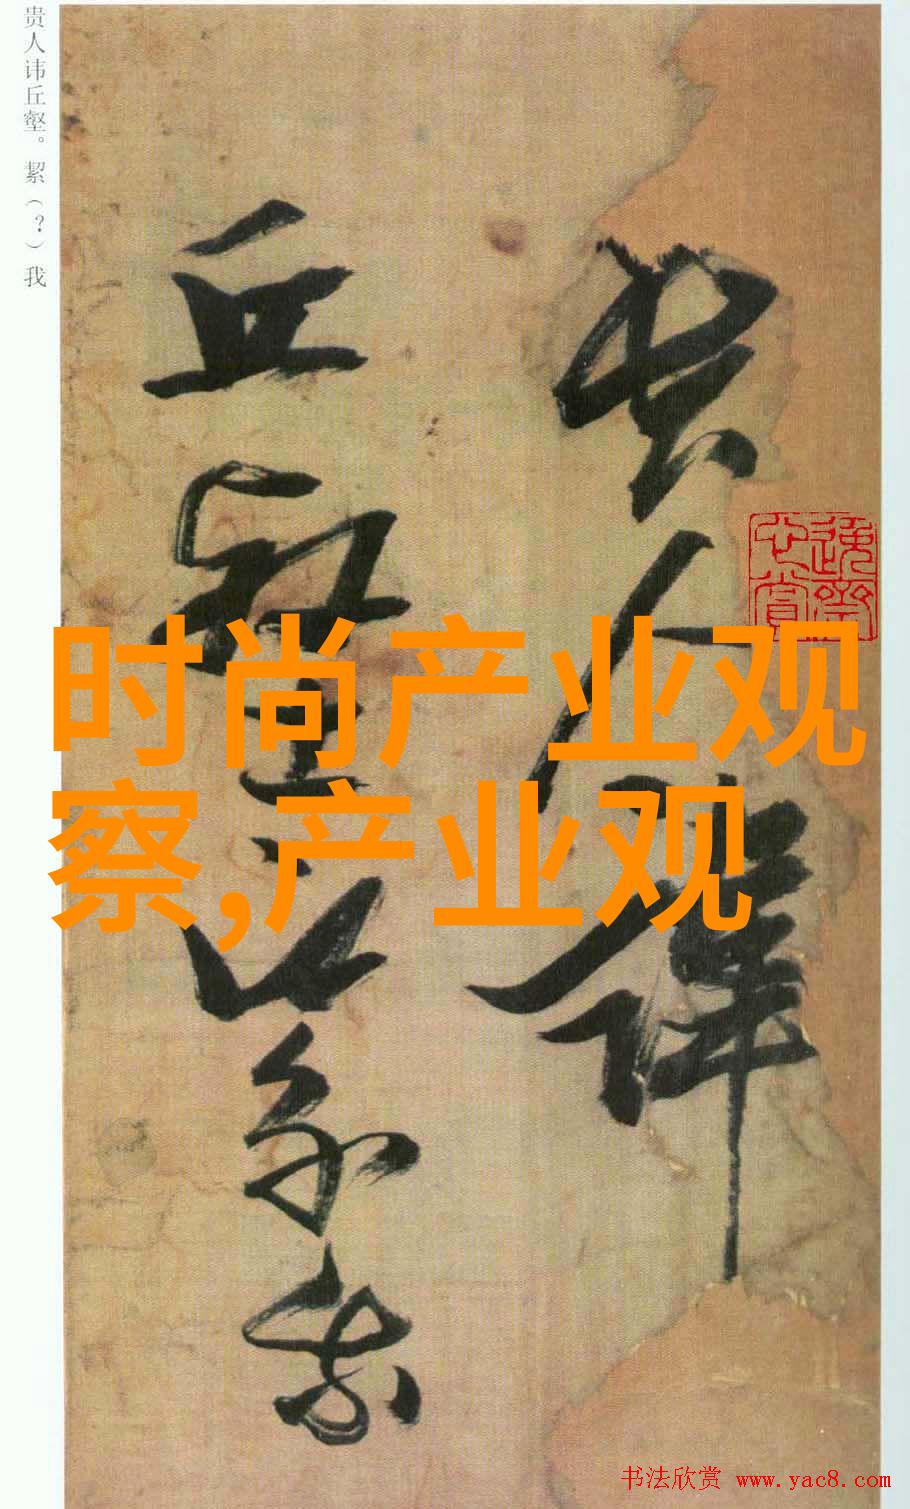 贵人讳丘壑。絜（？）我
贵人讳
丘壑。絜我
时尚产业观
察,产业观
书法欣赏 www.yac8.com